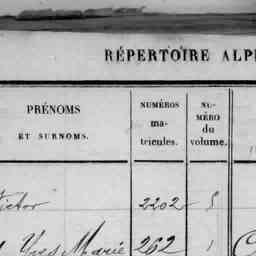 RÉPERTOIRE ALP
PRÉNOMS
ET SURNOMS.
NUMÉROS
ma-
tricules.
NU-
MÉRO
du
volume.
Victor 2202
Yves Marie 262 1